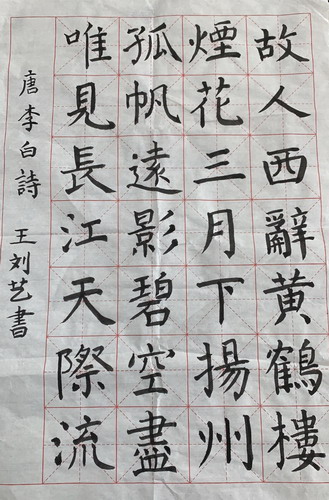 故人西辭黄鶴樓
煙花三月下揚州
孤帆遠影碧空盡
唯見長江天際流
唐李白詩
王刘艺書